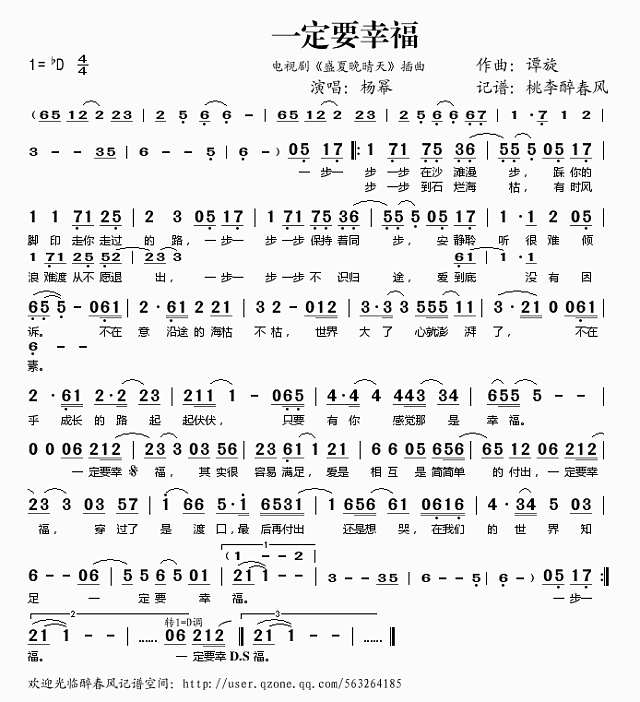 一定要幸福
1= ♭D 4/4
电视剧《盛夏晚晴天》插曲
作曲：谭旋
演唱：杨幂
记谱：桃李醉春风
(65 12 2 23 | 2 5 6 6 | 65 12 2 23 | 2 5 6 6 67 | 1 · 7 1 2 |
3 - - 35 | 6 - - 5 | 6 - - ) 05 17 ‖: 1 71 75 36 | 55 5 05 17 |
一步一 步 一步 在沙 滩漫 步， 踩你的
步 一步 到石 烂海 枯， 有时风
1 1 71 25 | 2 3 05 17 | 1 71 75 36 | 55 5 05 17 | 1 · 1 2 05 |
脚 印 走你 走过 的 路， 一步一 步 一步 保持 着同 步， 安静聆 听 很 难 倾
1 71 25 52 | 23 23 61 | 1 · 1
浪 难渡 从不 愿退 出， 一步一 步一步 不 识归 途， 爱到底 没 有 因
65 5 - 061 | 2 · 61 2 21 | 3 2 - 012 | 3 · 3 3 555 11 | 3 · 21 0 061 |
诉。 不在 意 沿途 的 海枯 不 枯， 世界 大 了 心就澎 湃 了， 不在
6 - -
素。
2 · 61 2·2 23 | 211 1 - 065 | 4·4 4 443 34 | 655 5 - - |
乎 成长 的 路 起 起伏伏， 只要 有 你 感觉那 是 幸 福。
0 0 06 212 | 23 3 03 56 | 23 61 1 21 | 6 6 05 656 | 65 12 06 212 |
一 定要幸 福， 其 实很 容易 满足， 爱是 相 互 是 简简单 的 付出， 一 定要幸
23 3 03 57 | 1 66 5·1 6531 | 1 656 61 0616 | 4 · 34 5 03 |
福， 穿 过了 是 渡 口，最 后再付出 还是想 哭， 在我们 的 世 界 知
1
(1 - - 2
6 - - 06 | 5 5 6 5 01 | 21 1 - - | 3 - - 35 | 6 - - 5 | 6 - - ) 05 17 :‖
足 一 定 要 幸 福。 一步一
2 转1=D调 3
21 1 - - | …… 06 212 ‖ 21 1 - - | …… ‖
福。 一 定要幸 D.S 福。
欢迎光临醉春风记谱空间：http://user.qzone.qq.com/563264185